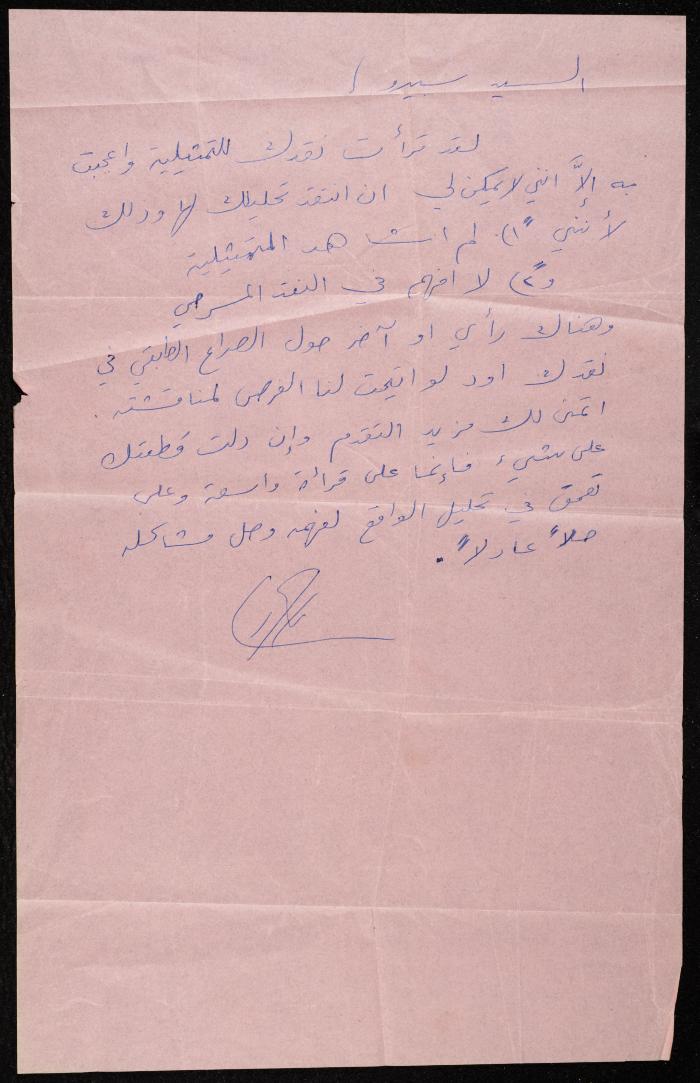 السيد سبيرو /
لقد قرأت نقدك للتمثيلية واعجبت
به إلاَّ انني لا يمكن لي ان انتقد تحليلك لها وذلك
لأنني "١) لم اشاهد التمثيلية
و"٢) لا افهم في النقد المسرحي
وهناك رأي او آخر حول الصراع الطبقي في
نقدك اود لو اتيحت لنا الفرص لمناقشته.
اتمنى لك مزيد التقدم وإن دلت قطعتك
على شيء فإنما على قرائة واسعة وعلى
تعمق في تحليل الواقع لفهمه وحل مشاكله
حلاً عادلاً.